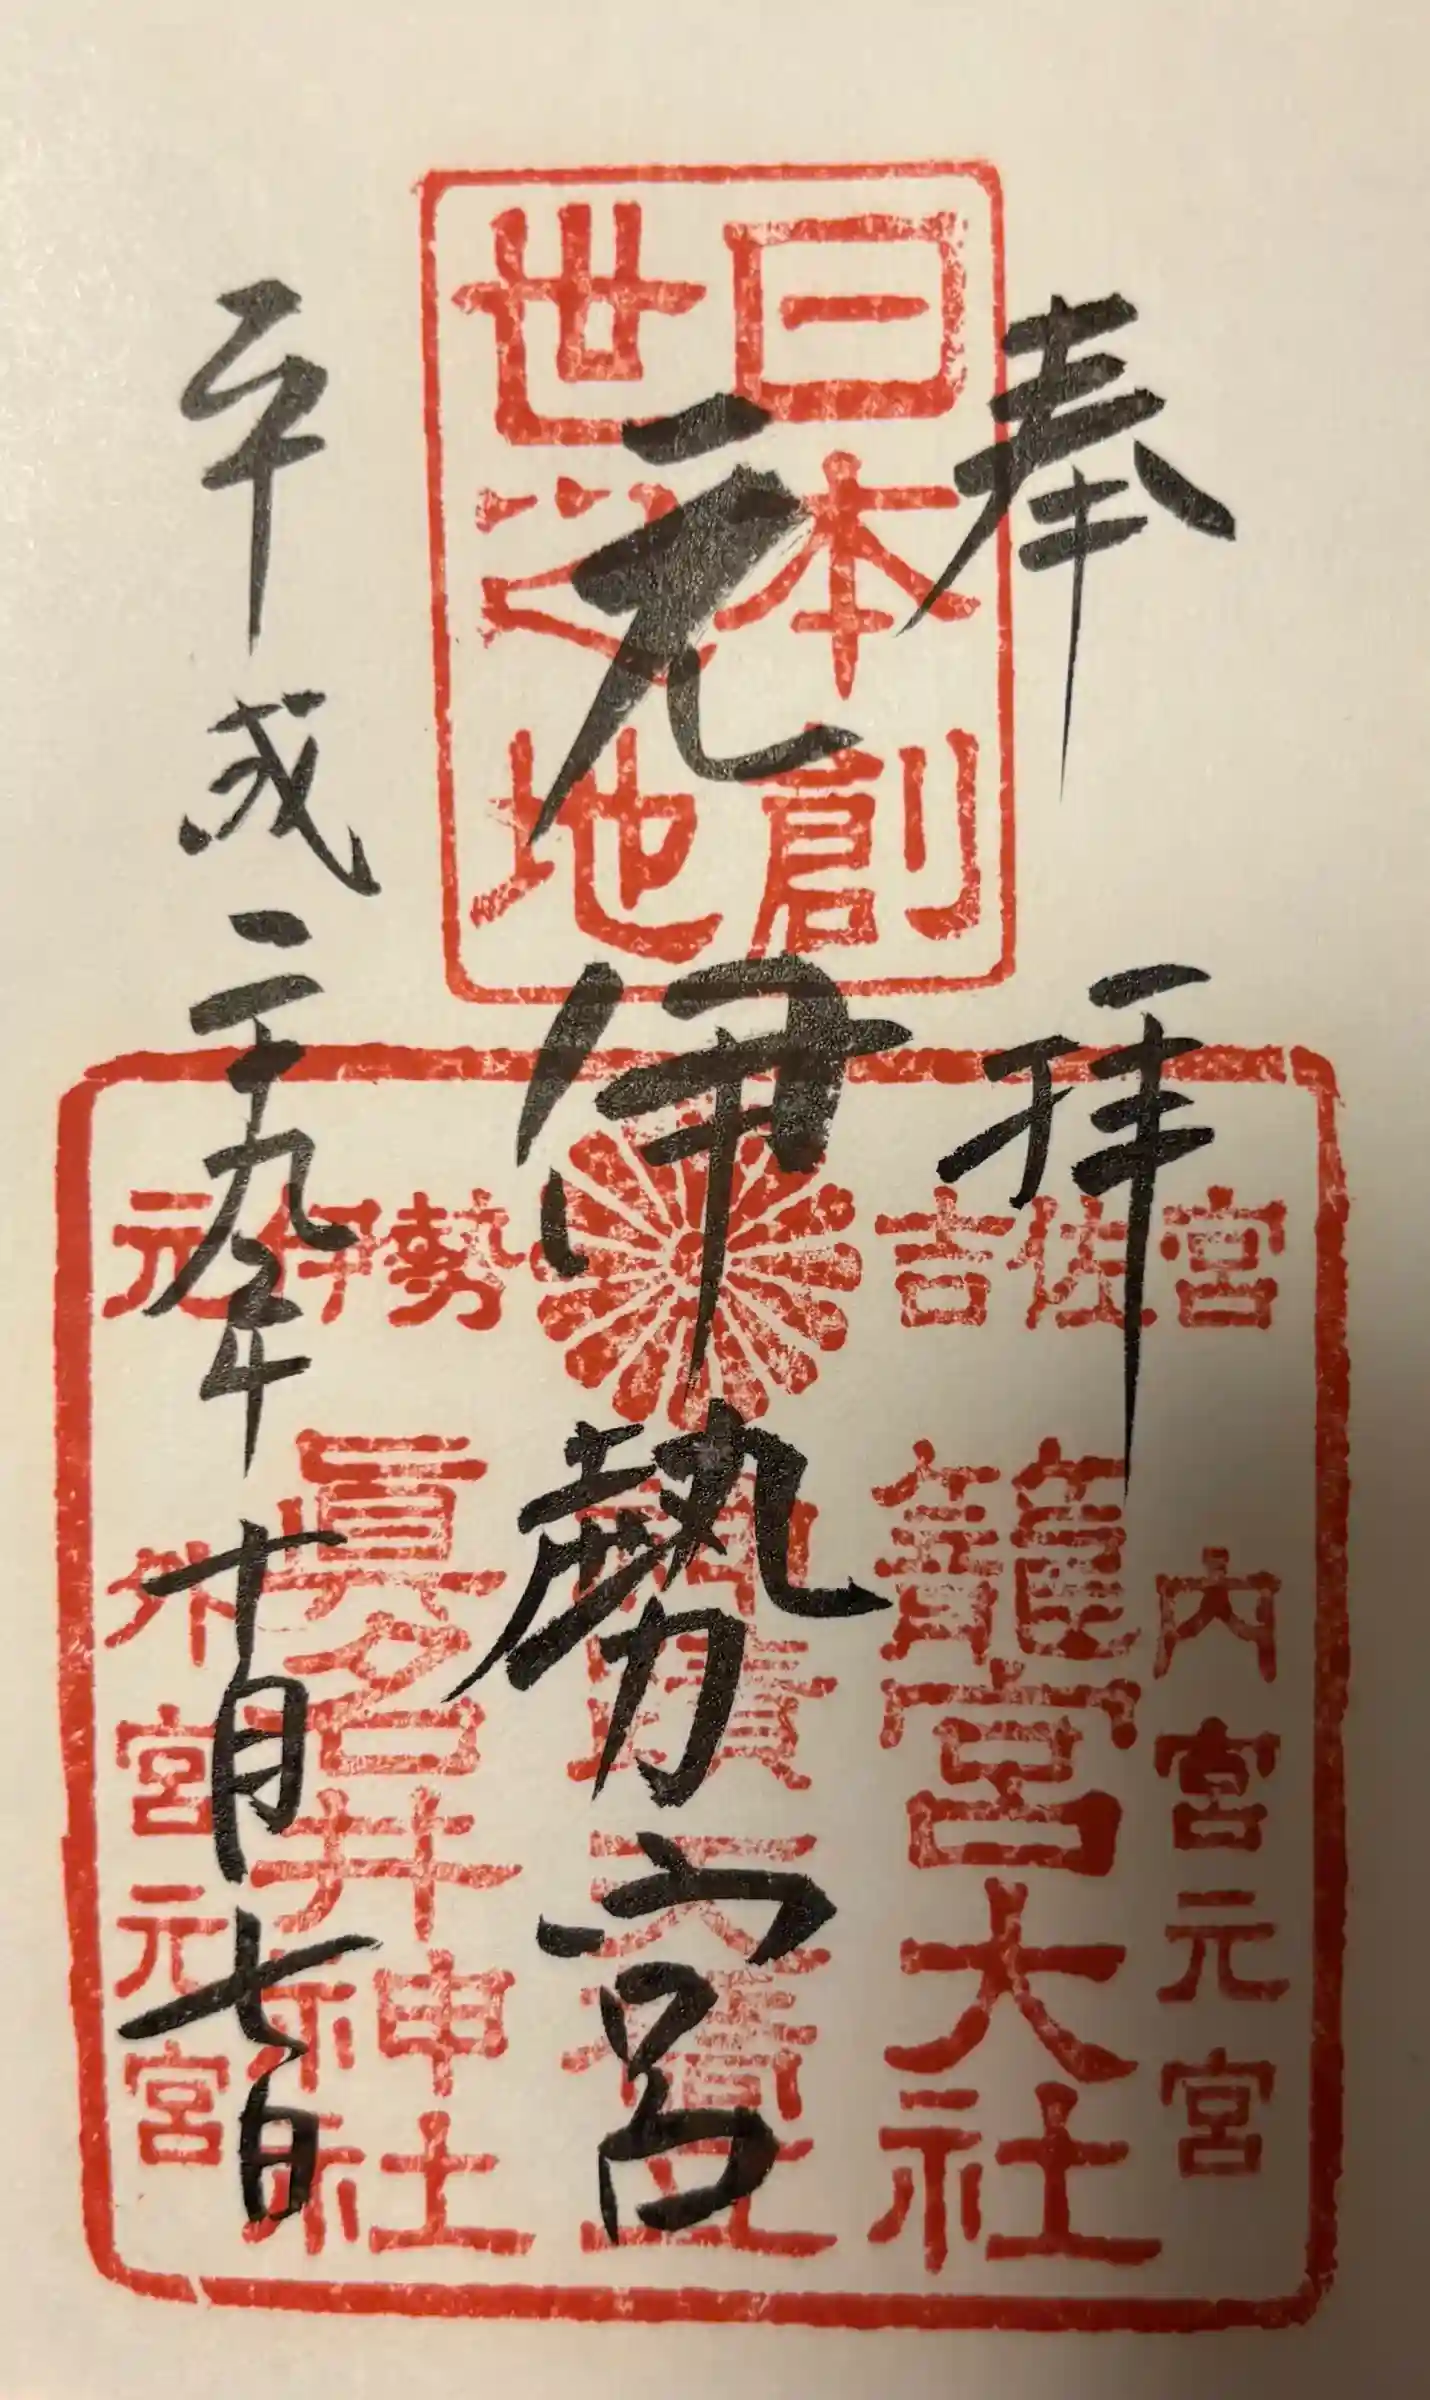 奉拝
日本創
世之地
元伊勢宮
平成二十九年十月七日
宮佐吉
勢伊元
内宮元宮
籠宮大社
眞名井神社
外宮元宮